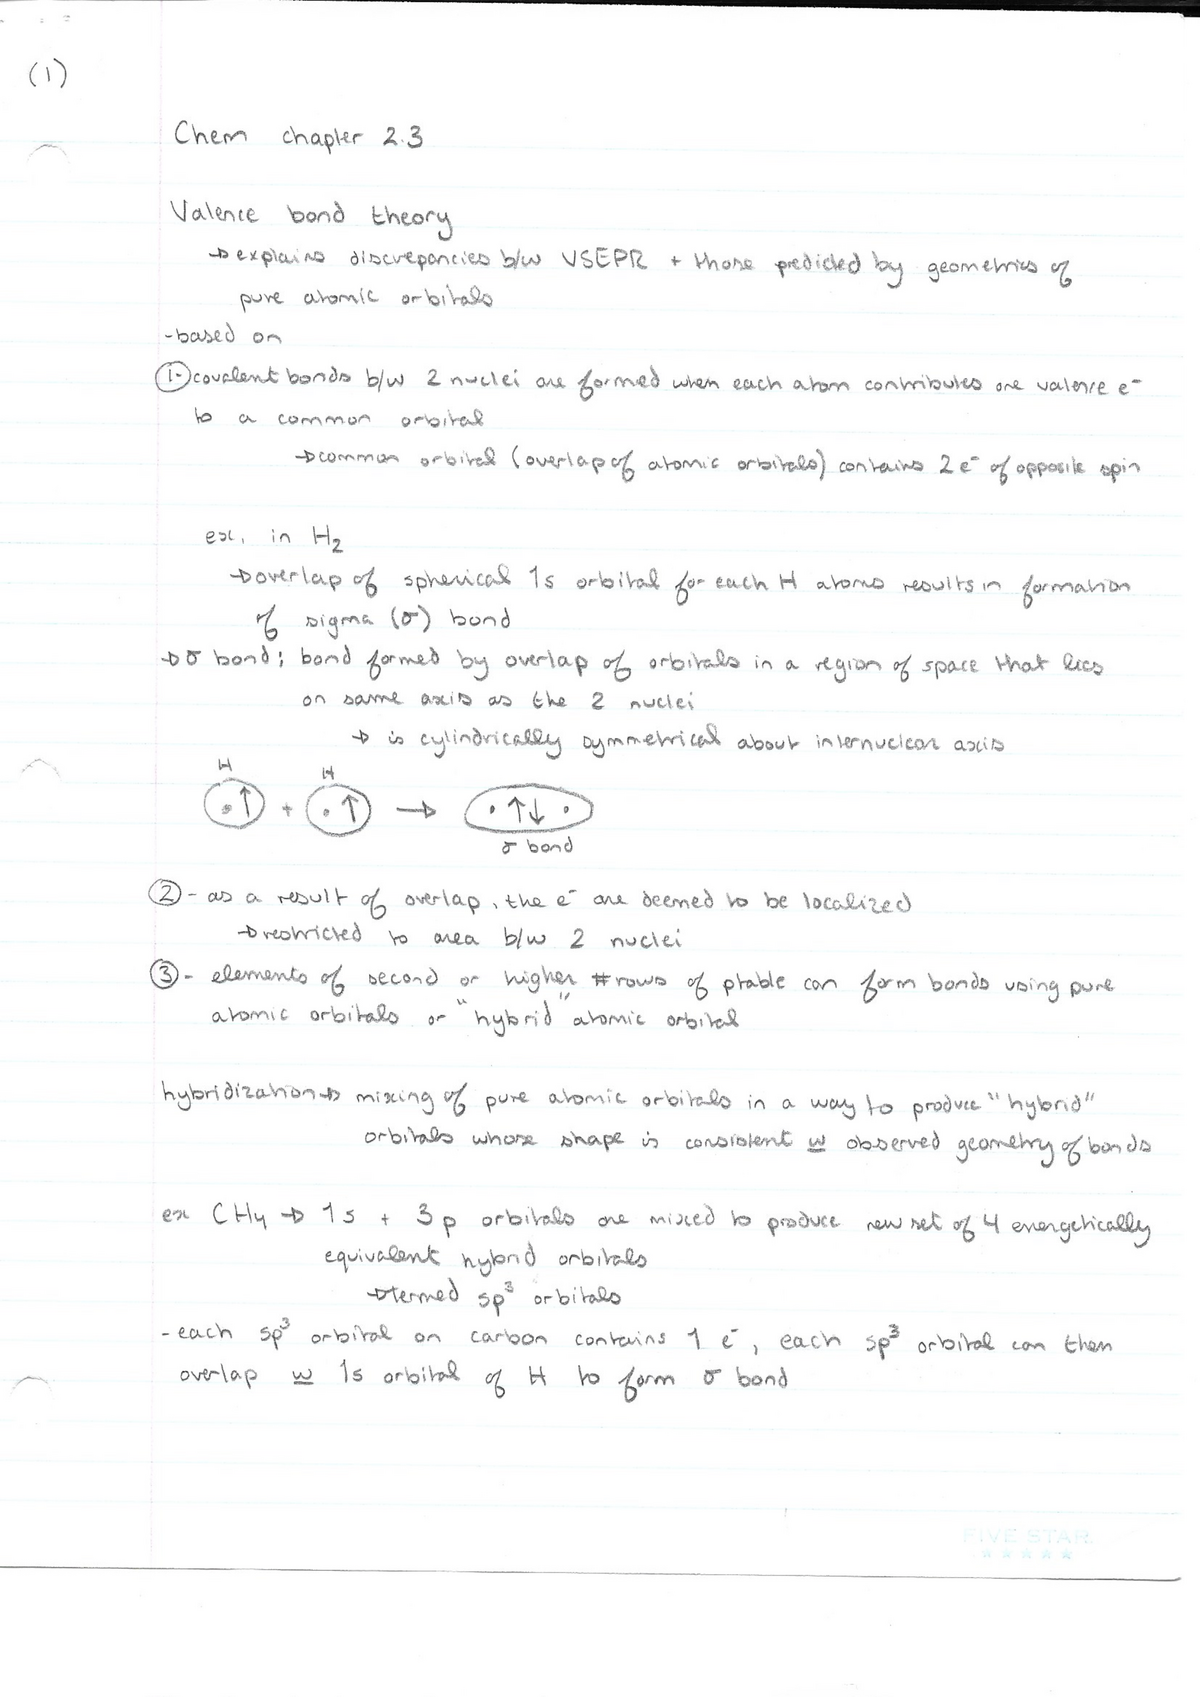 (1)
Chem chapter 2.3
Valence bond theory
→ explains discrepancies b/w VSEPR + those predicted by geometries of
pure atomic orbitals
- based on
①- covalent bonds b/w 2 nuclei are formed when each atom contributes one valence e⁻
to a common orbital
→ common orbital (overlap of atomic orbitals) contains 2 e⁻ of opposite spin
ex. in H₂
→ overlap of spherical 1s orbital for each H atoms results in formation
of sigma (σ) bond
→ σ bond; bond formed by overlap of orbitals in a region of space that lies
on same axis as the 2 nuclei
→ is cylindrically symmetrical about internuclear axis
H H
·↑ + ·↑ → ·↑↓·
σ bond
② - as a result of overlap, the e⁻ are deemed to be localized
→ restricted to area b/w 2 nuclei
③ - elements of second or higher # rows of ptable can form bonds using pure
atomic orbitals or "hybrid" atomic orbital
hybridization → mixing of pure atomic orbitals in a way to produce "hybrid"
orbitals whose shape is consistent w observed geometry of bonds
ex CH₄ → 1s + 3p orbitals are mixed to produce new set of 4 energetically
equivalent hybrid orbitals
→ termed sp³ orbitals
- each sp³ orbital on carbon contains 1 e⁻, each sp³ orbital can then
overlap w 1s orbital of H to form σ bond
FIVE STAR.
★★★★★